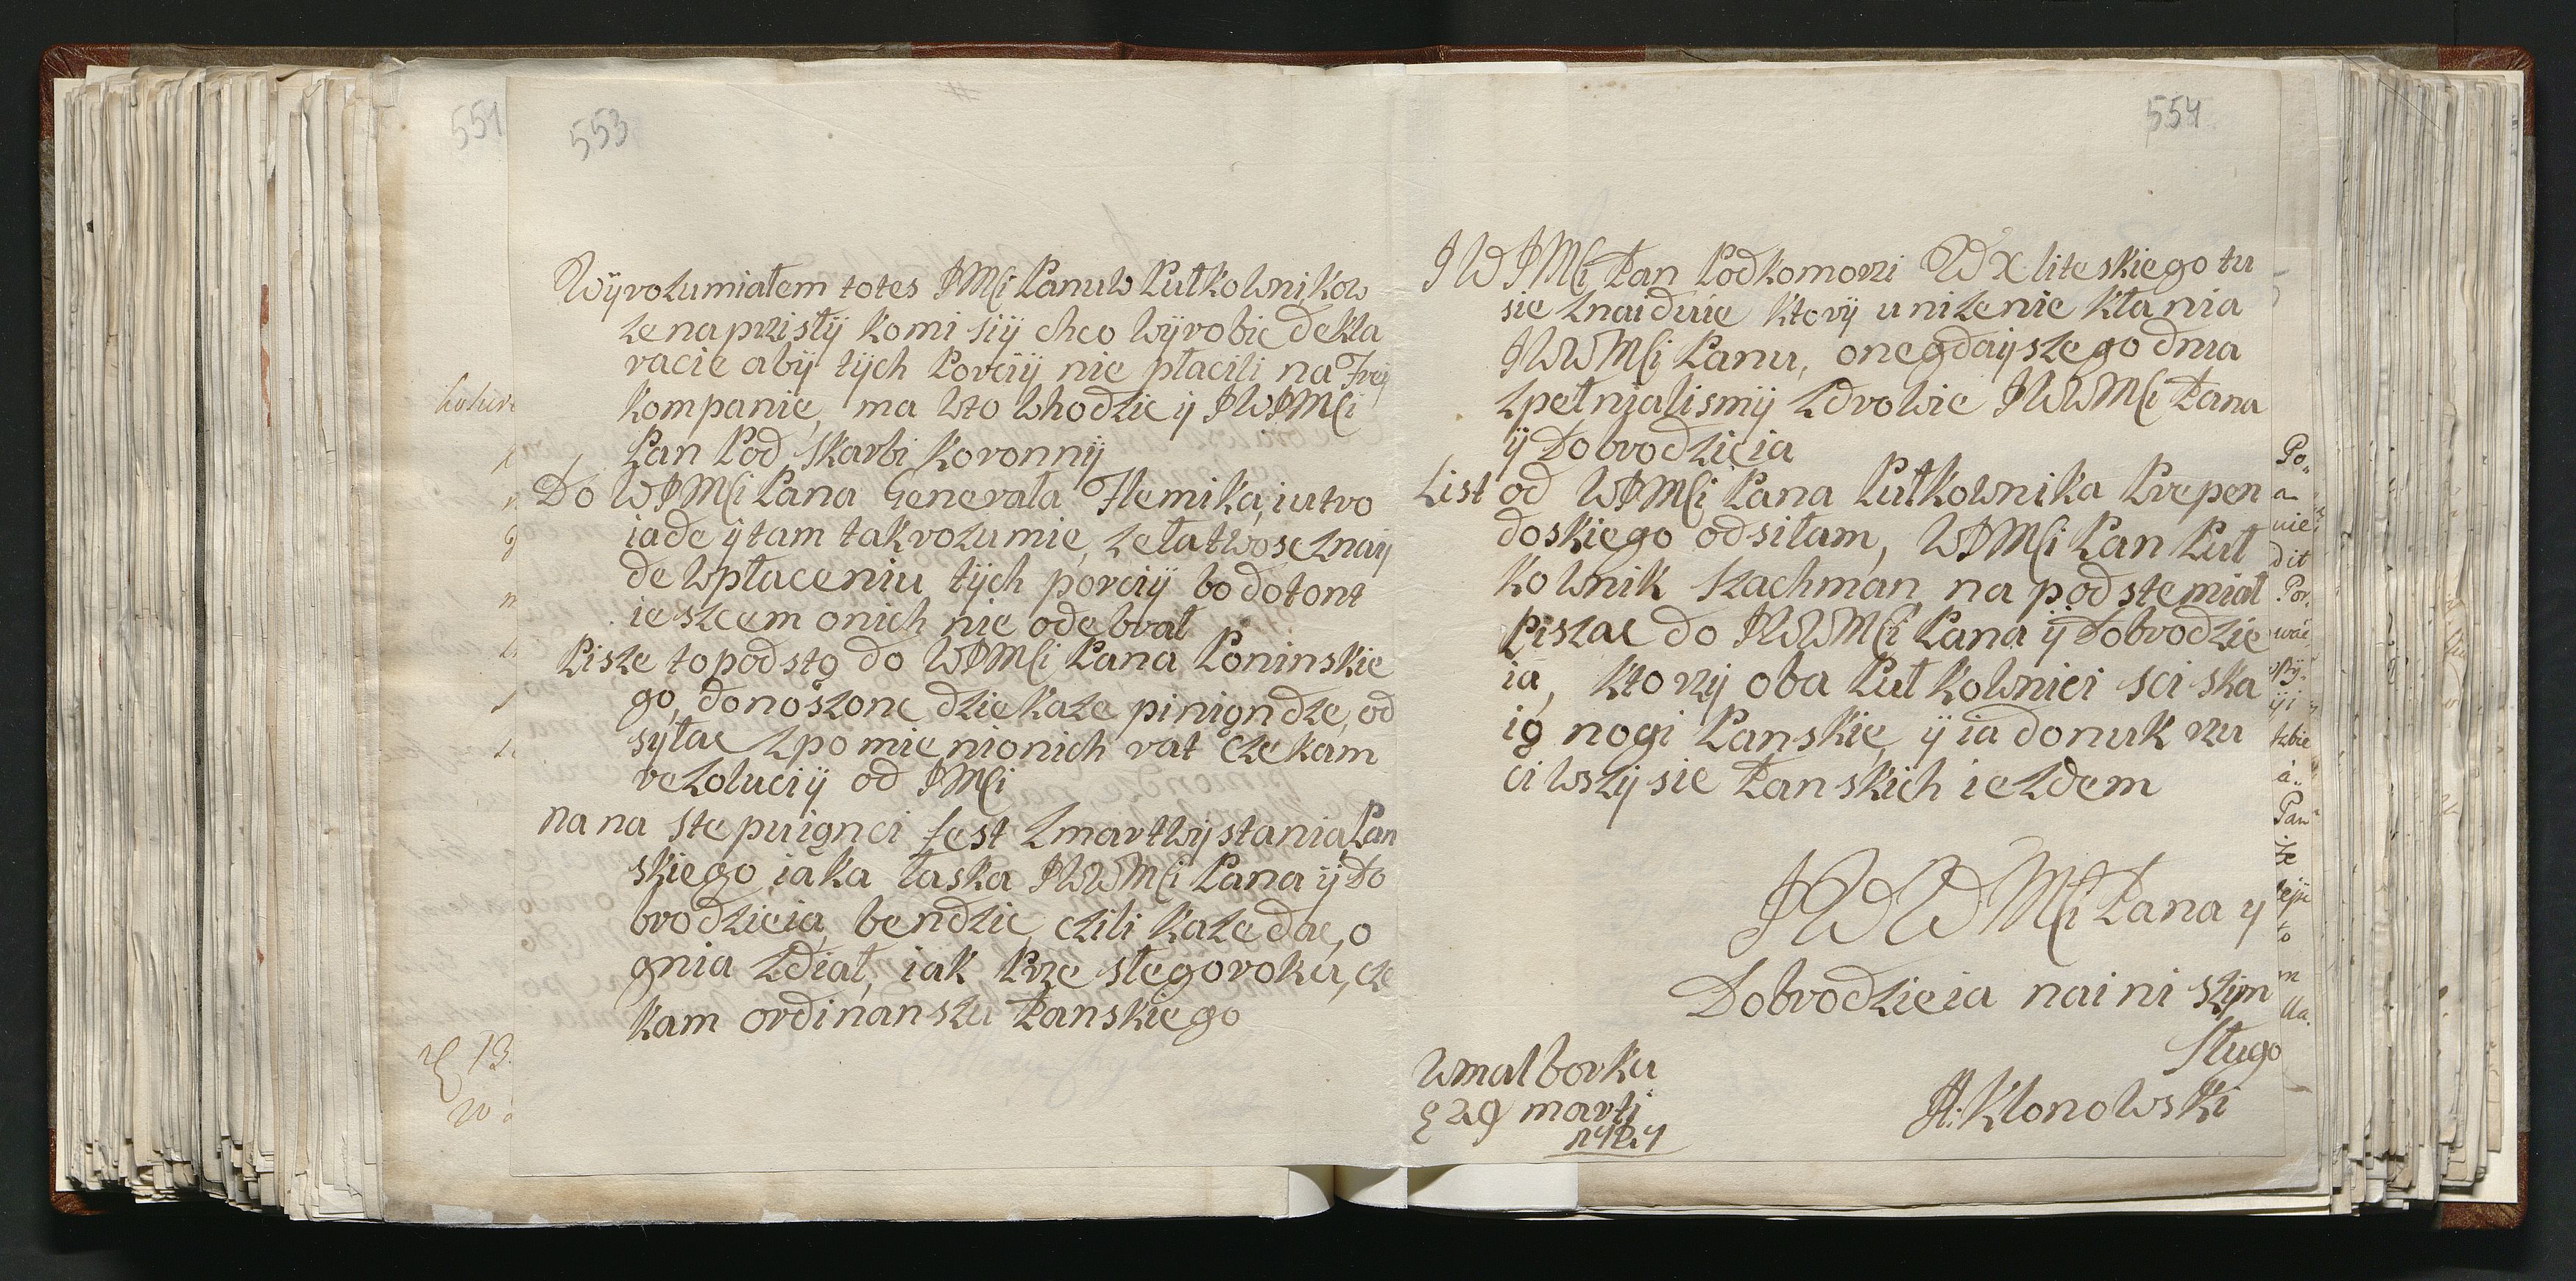 551
553
Wÿrozumiałem totes JMCi Panuw Pułkolwnikow
ze naprzistÿ komi siÿ chco wÿrobic dekla
racie abÿ tÿch Porciÿ nie płacili na Frey
kompanie, ma wto whodzie ÿ JWJMCi
Pan Pod skarbi koronnÿ
Do WJMCi Pana Generała Flemika, iutro
iade ÿ tam tak rozumie, ze łatwosc znaÿ
de wpłaceniu tÿch porciÿ bo dotont
ieszcem onich nie odebrał
Pisze topodsto do WJMCi Pana Poninskie
go, donoszonc dzie kaze piniondze, od
syłac zpo mie nionich rat czekam
rezoluciÿ od JMCi
na na ste puignci fest zmartwÿstania Pan
skiego iaka łaska JWWMCi Pana ÿ Do
brodzieia bendzie czili kaze dac, o
gnia zdiał, iak Prze słego roku, cze
kam ordinanszu Panskiego
554
JWJMCi Pan Podkomorzi WX liteskiego tu
sie znaiduie ktorÿ unizenie kłania
JWWMCi Panu, onegdaÿszego dnia
zpełnialismÿ zdrowie JWWMCi Pana
ÿ Dobrodzieia
List od WJMCi Pana Pułkownika Prepen
doskiego odsiłam, WJMCi Pan Puł
kolwnik Szachman na pod ste miał
piszac do JWWMCi Pana ÿ Dobrodzie
ia, ktorzÿ oba Puł kolwnici sci ska
io nogi Panskie, ÿ ia donuk rzu
ciwszÿ sie Panskich iezdem
JWWMCi Pana y
Dobrodzieia nai ni szim
Sługo
A: Klonolwski
Wmalborku
29 marti